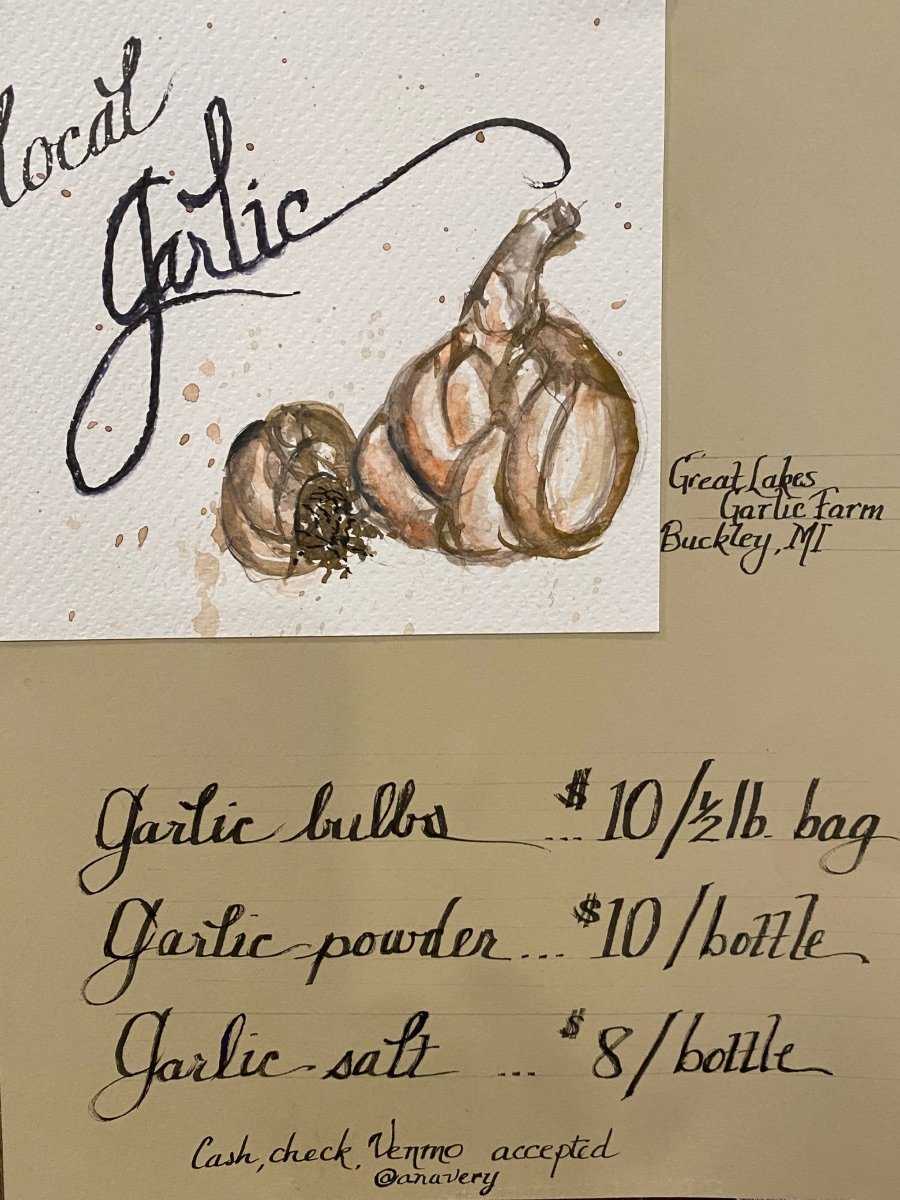 local
Garlic
Great Lakes
Garlic Farm
Buckley, MI
Garlic bulbs ... $10/½ lb bag
Garlic powder... $10/bottle
Garlic salt ... $8/bottle
Cash, check, Venmo accepted
@anavery